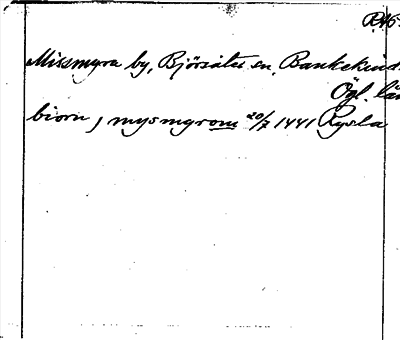 Missmyra by, Björsäter sn, Bankekind
Ögl. län
biorn j mysmyrom 20/7 1441 Rysla